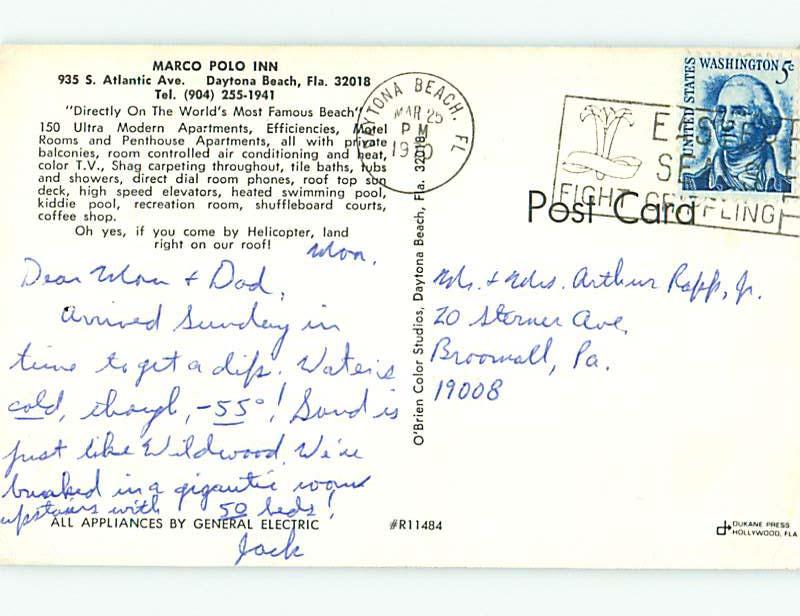 MARCO POLO INN
935 S. Atlantic Ave. Daytona Beach, Fla. 32018
Tel. (904) 255-1941
"Directly On The World's Most Famous Beach"
150 Ultra Modern Apartments, Efficiencies, Motel
Rooms and Penthouse Apartments, all with private
balconies, room controlled air conditioning and heat,
color T.V., Shag carpeting throughout, tile baths, tubs
and showers, direct dial room phones, roof top sun
deck, high speed elevators, heated swimming pool,
kiddie pool, recreation room, shuffleboard courts,
coffee shop.
Oh yes, if you come by Helicopter, land
right on our roof!
Mon.
Dear Mom + Dad,
Arrived Sunday in
time to get a dip. Water is
cold, though, -55°! Sand is
just like Wildwood. We're
bunked in a gigantic room
upstairs with 50 beds!
Jack
ALL APPLIANCES BY GENERAL ELECTRIC
#R11484
O'Brien Color Studios, Daytona Beach, Fla. 32018
DAYTONA BEACH, FL
MAR 25
PM
EASTER
FIGHT CRIPPLING
UNITED STATES WASHINGTON 5c
Post Card
Mr. + Mrs. Arthur Rapp, Jr.
20 Sterner Ave.
Broomall, Pa.
19008
DUKANE PRESS
HOLLYWOOD, FLA